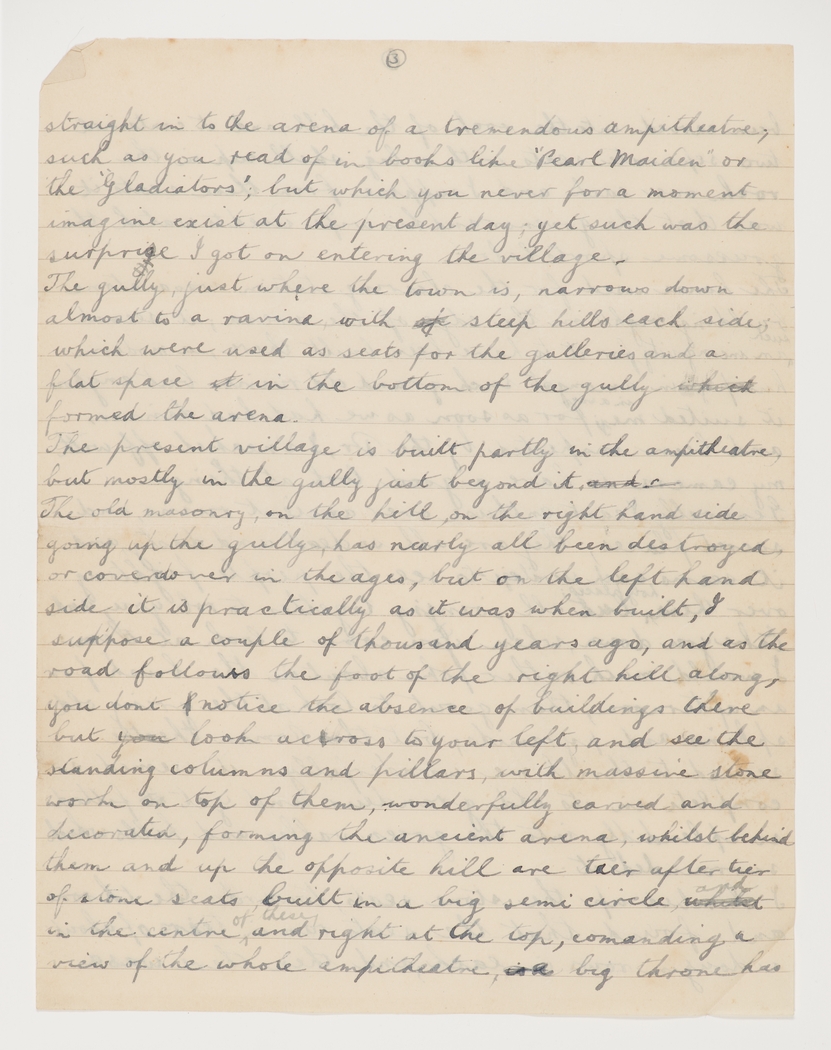 3
straight in to the arena of a tremendous ampitheatre,
such as you read of in books like "Pearl Maiden" or
the 'Gladiators'; but which you never for a moment
imagine exist at the present day; yet such was the
surprise I got on entering the village.
The gully, just where the town is, narrows down
almost to a ravine with of steep hills each side;
which were used as seats for the galleries and a
flat space at in the bottom of the gully which
formed the arena.
The present village is built partly in the ampitheatre,
but mostly in the gully just beyond it, and
The old masonry, on the hill, on the right hand side
going up the gully, has nearly all been destroyed,
or coverdover in the ages, but on the left hand
side it is practically as it was when built, I
suppose a couple of thousand years ago, and as the
road follows the foot of the right hill along,
you dont notice the absence of buildings there
but you look across to your left, and see the
standing columns and pillars, with massive stone
work on top of them, wonderfully carved and
decorated, forming the ancient arena, whilst behind
them and up the opposite hill are tier after tier
of stone seats, built in a big semi circle, whilst and
in the centre of these, and right at the top, comanding a
view of the whole ampitheatre, is a big throne has